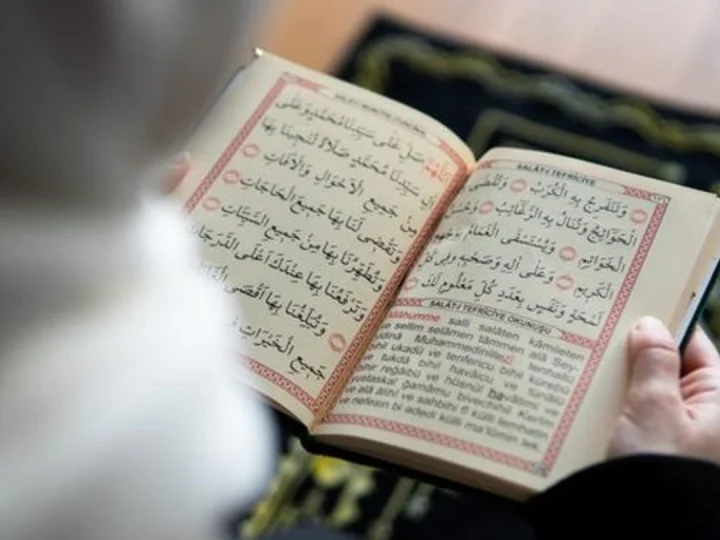 SALÂT-I TEFRİCİYE
وَتَنْفَرِجُ بِهِ الْكُرَبُ وَتُقْضَى
الْحَوَائِجُ وَتُنَالُ بِهِ الرَّغَائِبُ وَحُسْنُ
الْخَوَاتِمِ وَيُسْتَسْقَى الْغَمَامُ
الْكَرِيمِ وَعَلَى اٰلِهِ وَصَحْبِهِ فِي كُلِّ
لَمْحَةٍ وَنَفَسٍ بِعَدَدِ كُلِّ مَعْلُومٍ لَكَ
SALÂT-I TEFRİCİYE OKUNUŞU
salli salâten kâmileten
ve sellim selâmen tâmmen alâ
Muhammedinillezî tenhallü
ukadü ve tenfericu bihil
ve tukdâ bihil havâicu ve tünâlü
bihir reğâibü ve hüsnül
ğamâmu bivechihil Kerîm
ve alâ âlihî ve sahbihî fî külli lemhatin
ve nefesin bi adedi külli ma'lûmin lek.
صَلِّ عَلَى سَيِّدِنَا مُحَمَّدٍ وَعَلَى
سَيِّدِنَا مُحَمَّدٍ صَلَاةً تُنْجِينَا بِهَا
مِنْ جَمِيعِ الْاَحْوَالِ وَالْاٰفَاتِ
وَتَقْضِي لَنَا بِهَا جَمِيعَ الْحَاجَاتِ
وَتُطَهِّرُنَا بِهَا مِنْ جَمِيعِ السَّيِّئَاتِ
وَتَرْفَعُنَا بِهَا عِنْدَكَ اَعْلَى الدَّرَجَاتِ
وَتُبَلِّغُنَا بِهَا اَقْصَى
جَمِيعِ الْخَيْرَاتِ